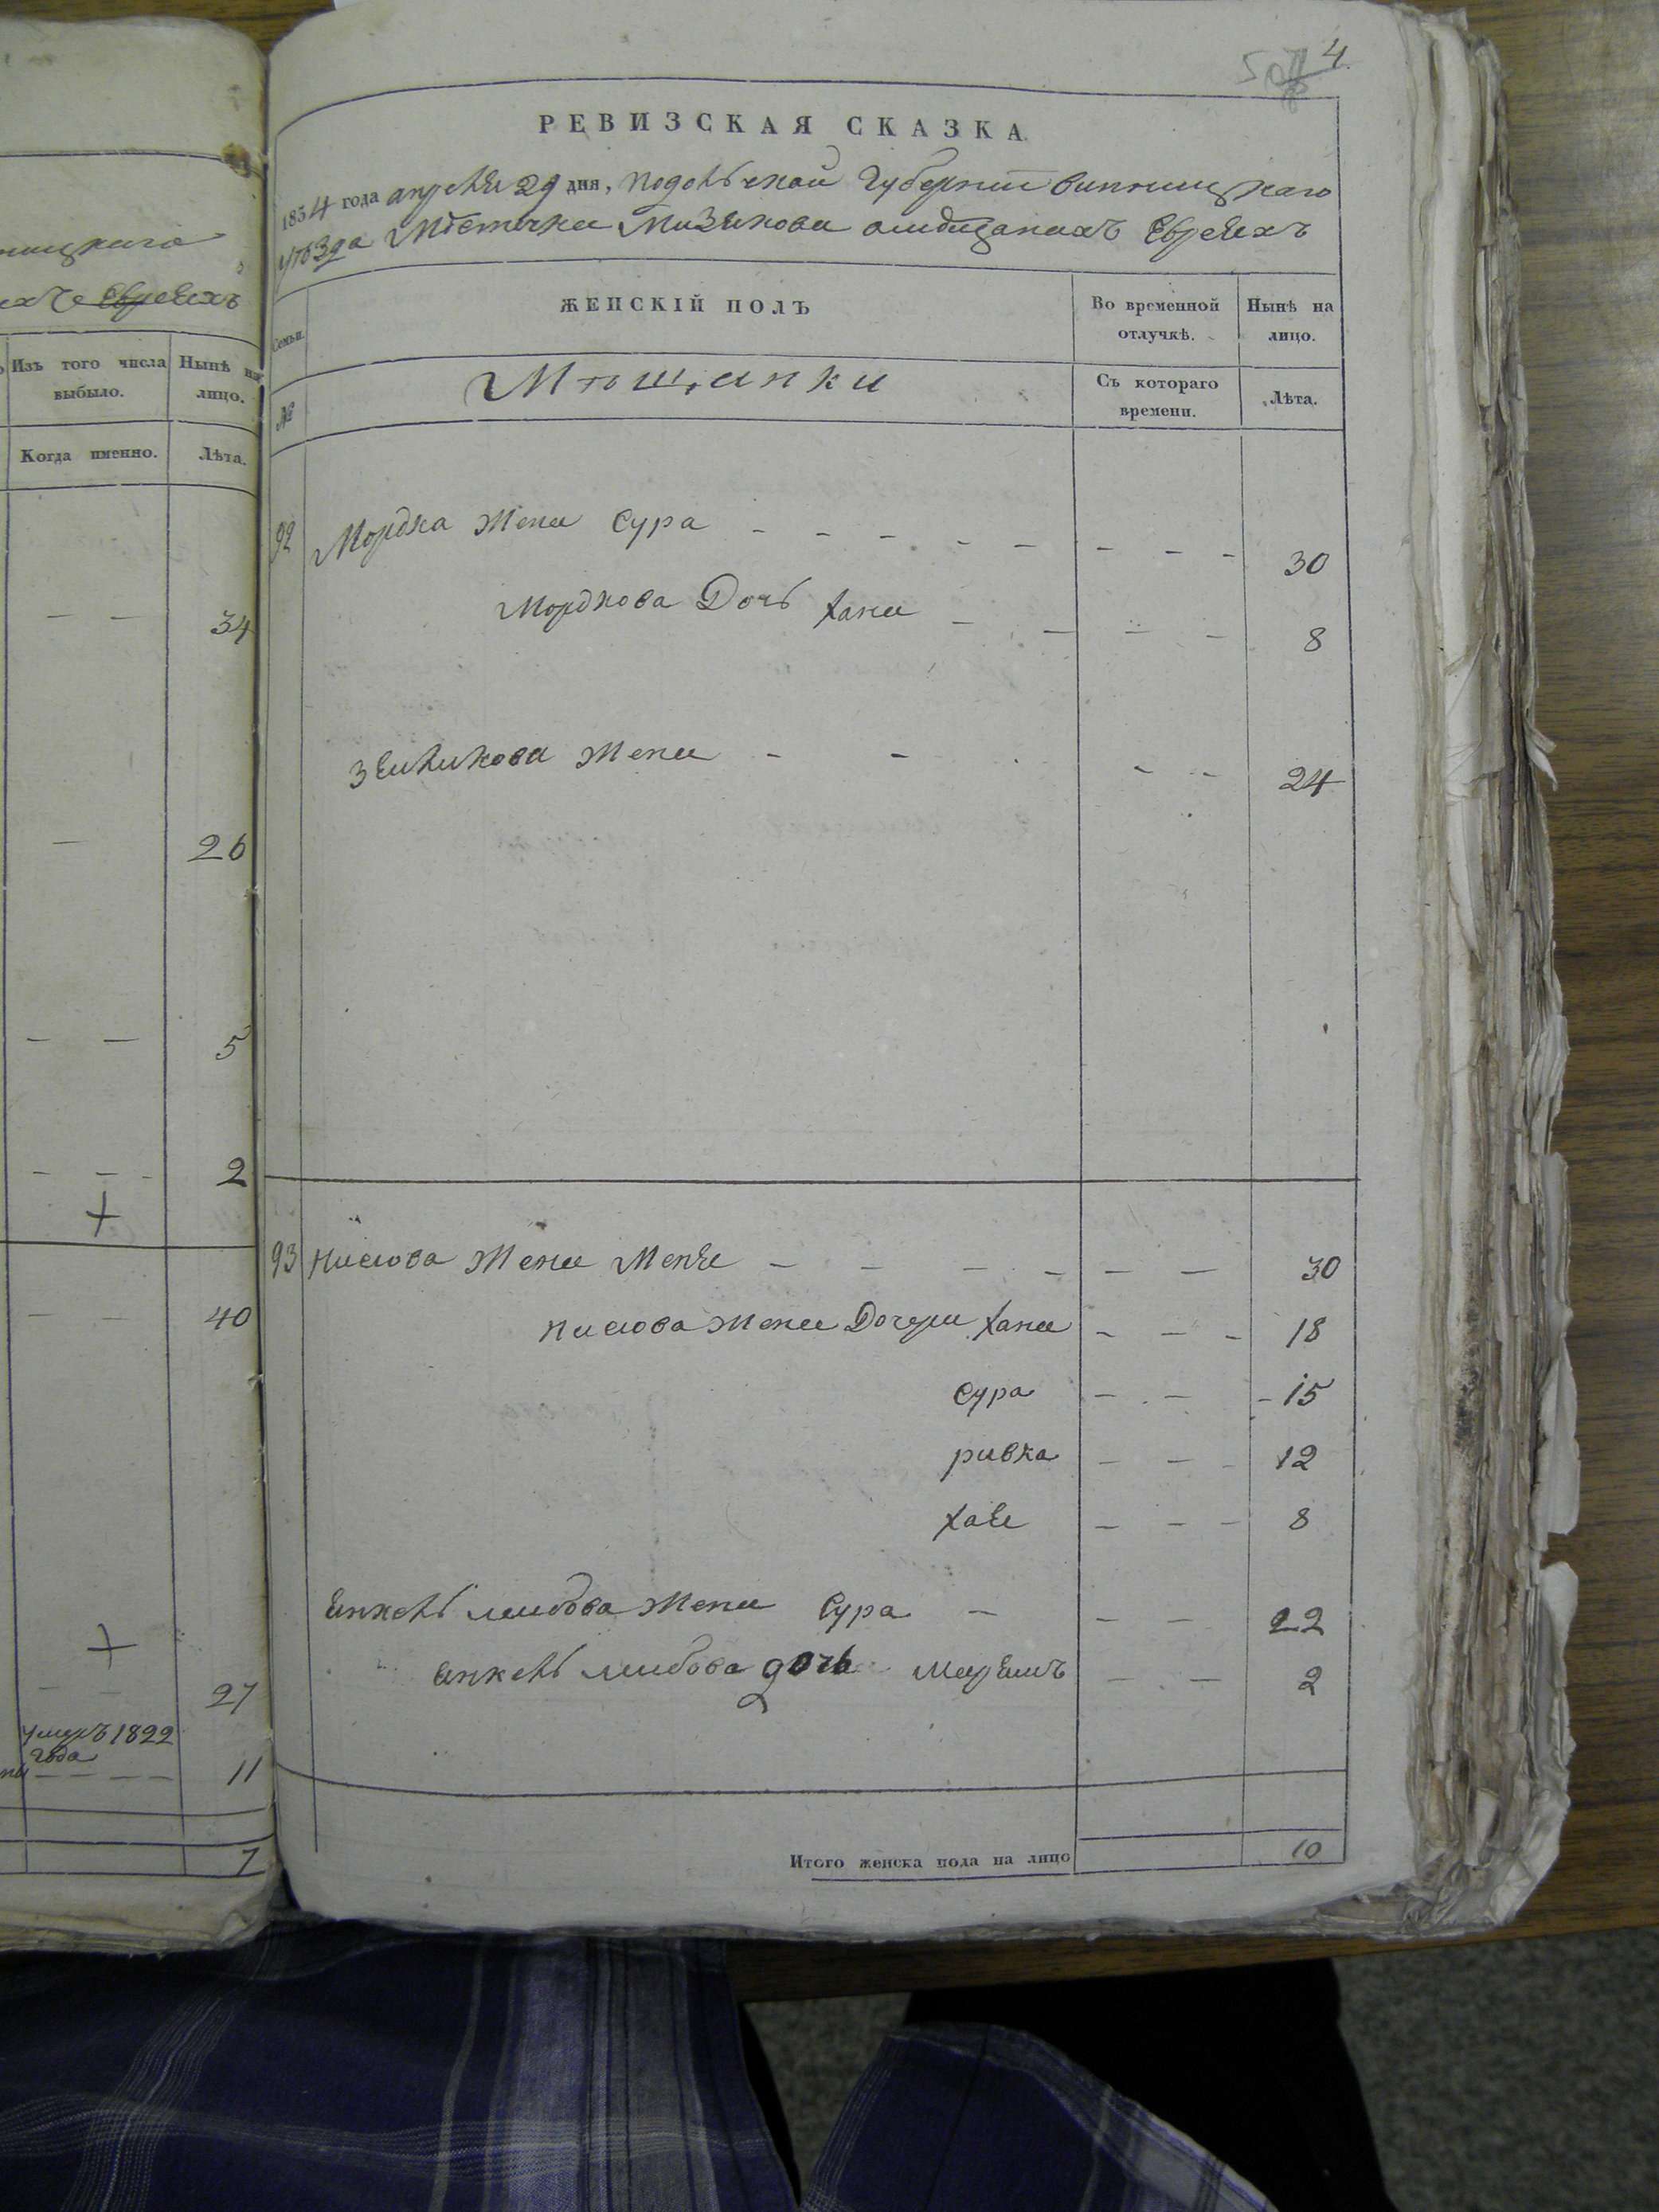 4
РЕВИЗСКАЯ СКАЗКА.
1834 года апреля 29 дня, подольской Губернии винницкаго
уѣзда Мѣстечка Мизякова омещанахъ Евреяхъ
Семьи.
ЖЕНСКІЙ ПОЛЪ
Во временной отлучкѣ.
Нынѣ на лицо.
№
Мѣщанки
Съ котораго времени.
Лѣта.
92 Мордка жена Сура - - - - - - - - 30
Мордкова Дочь хана - - - - 8
жена - - - - 24
93 Нисюва жена Меня - - - - - - 30
Нисюва жена Дочери хана - - - 18
Сура - - - 15
ривка - - - 12
хая - - - 8
янкель лейбова жена Сура - - - 22
янкель лейбова дочь - - 2
Итого женска пола на лицо 10
ницкаго
Евреяхъ
Изъ того числа выбыло.
Нынѣ на лицо.
Когда именно.
Лѣта.
- - 34
- 26
- - 5
- - 2
- - 40
- - 27
умеръ 1822
года
- - - - 11
7